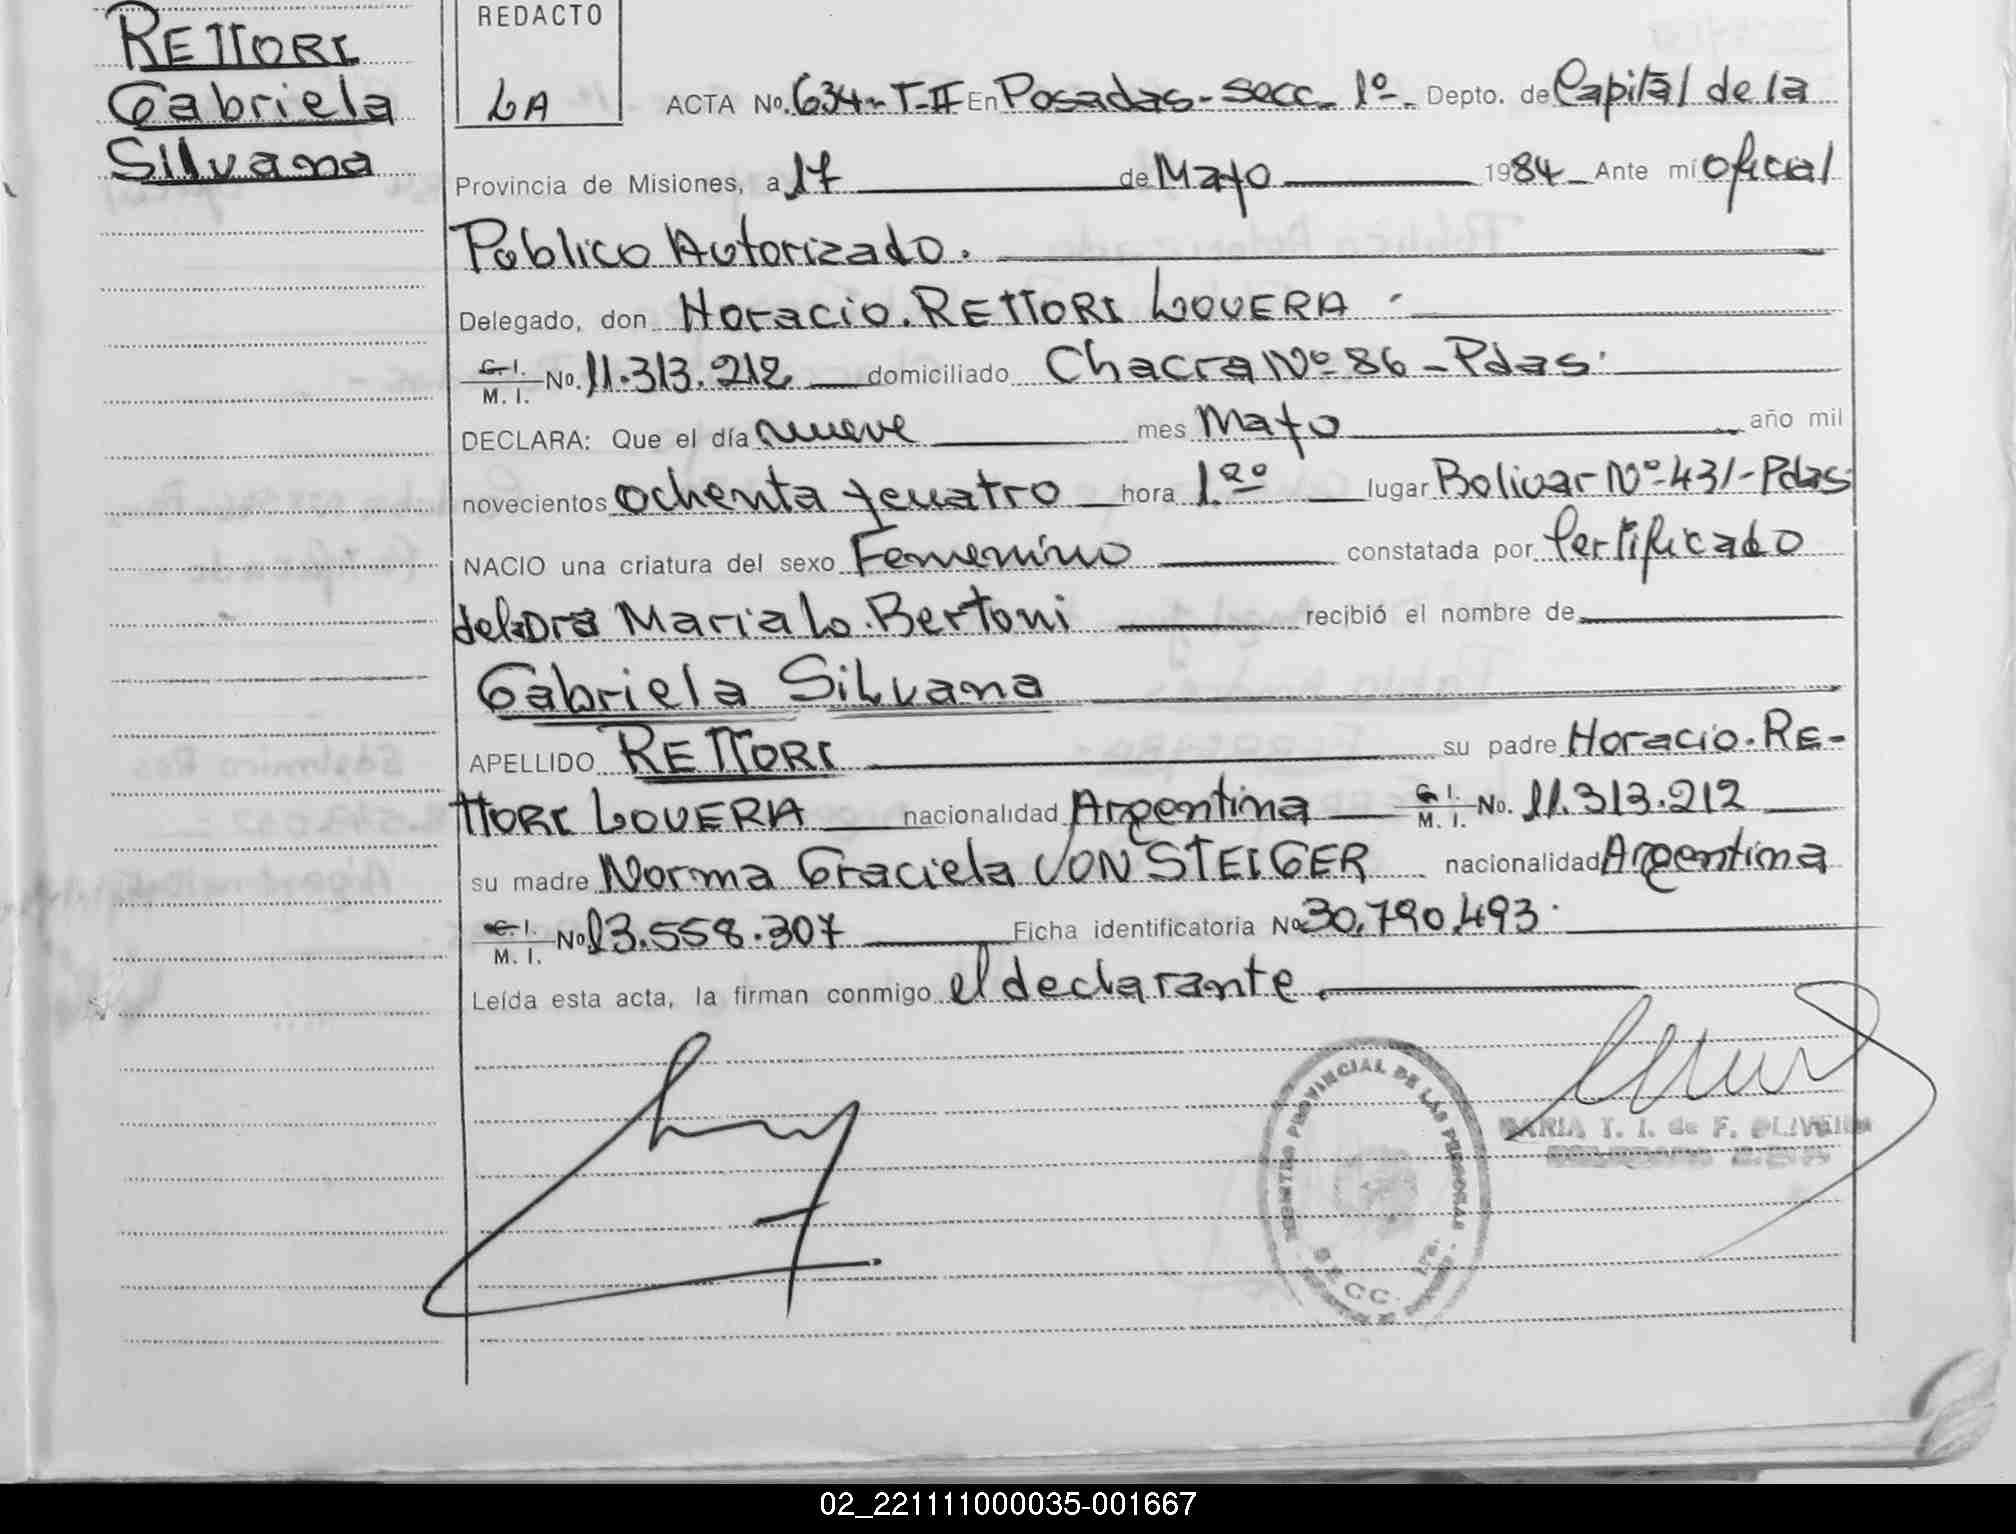 RETTORI
Gabriela
Silvana
REDACTO
LA
ACTA No. 634-T-II En Posadas-Secc. 1º. Depto. de Capital de la
Provincia de Misiones, a 17 de Mayo 1984 Ante mí Oficial
Publico Autorizado.
Delegado, don Horacio. RETTORI LOVERA
C. I. M. I. No. 11.313.212 domiciliado Chacra Nº 86-Pdas.
DECLARA: Que el día nueve mes Mayo año mil
novecientos ochenta y cuatro hora 1.20 lugar Bolivar Nº-431-Pdas
NACIO una criatura del sexo Femenino constatada por Certificado
de la Dra Maria Lo. Bertoni recibió el nombre de
Gabriela Silvana
APELLIDO RETTORI su padre Horacio. RE-
TTORI LOVERA nacionalidad Argentina C. I. M. I. No. 11.313.212
su madre Norma Graciela VON STEIGER nacionalidad Argentina
C. I. M. I. No 13.558.307 Ficha identificatoria No 30.790.493.
Leída esta acta, la firman conmigo el declarante.
REGISTRO PROVINCIAL DE LAS PERSONAS
SECC. 1ra.
MARIA T. I. de F. OLIVEIRA
02_221111000035-001667